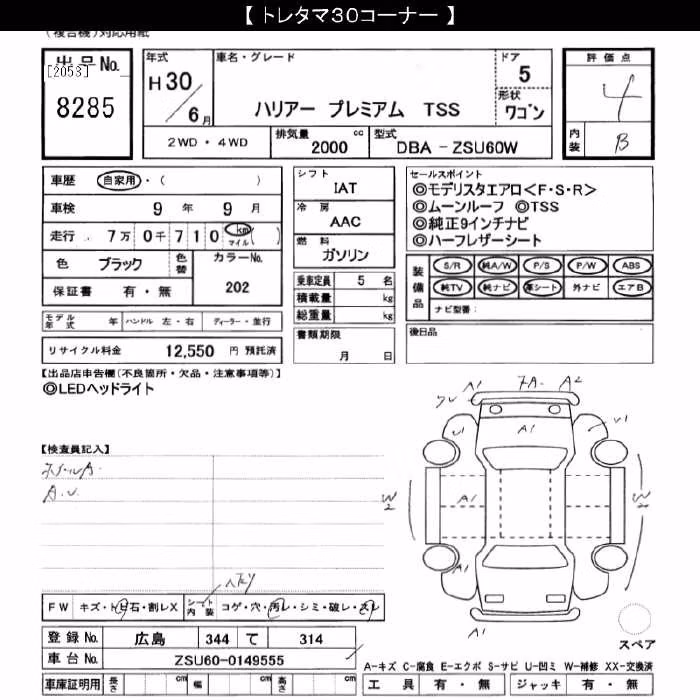 【 トレタマ30コーナー 】
(複合機)対応用紙
出品No.
[2053]
8285
年式
H30/6月
車名・グレード
ハリアー プレミアム TSS
ドア
5
形状
ワゴン
評価点
4
内装
B
2WD・4WD
排気量
2000 cc
型式
DBA - ZSU60W
車歴 自家用・( )
車検 9年 9月
走行 7万0千710 km マイル ( )
色 ブラック
色替
カラーNo.
202
保証書 有・無
シフト
IAT
冷房
AAC
燃料
ガソリン
乗車定員 5 名
積載量 kg
総重量 kg
セールスポイント
◎モデリスタエアロ<F・S・R>
◎ムーンルーフ ◎TSS
◎純正9インチナビ
◎ハーフレザーシート
装備品
S/R 純A/W P/S P/W ABS
純TV 純ナビ 革シート 外ナビ エアB
ナビ型番:
モデル年式 年 ハンドル 左・右 ディーラー・並行
リサイクル料金 12,550 円 預託済
書類期限
月 日
後日品
【出品店申告欄(不良箇所・欠品・注意事項等)】
◎LEDヘッドライト
A1 A2
A1
A1
W2 W2
A1
【検査員記入】
FW キズ・トビ石・割レX
シート内装 コゲ・穴・汚レ・シミ・破レ・スレ
登録No. 広島 344 て 314
車台No. ZSU60-0149555
車庫証明用 長さ cm 幅 cm 高さ cm
スペア
A-キズ C-腐食 E-エクボ S-サビ U-凹ミ W-補修 XX-交換済
工具 有・無 ジャッキ 有・無